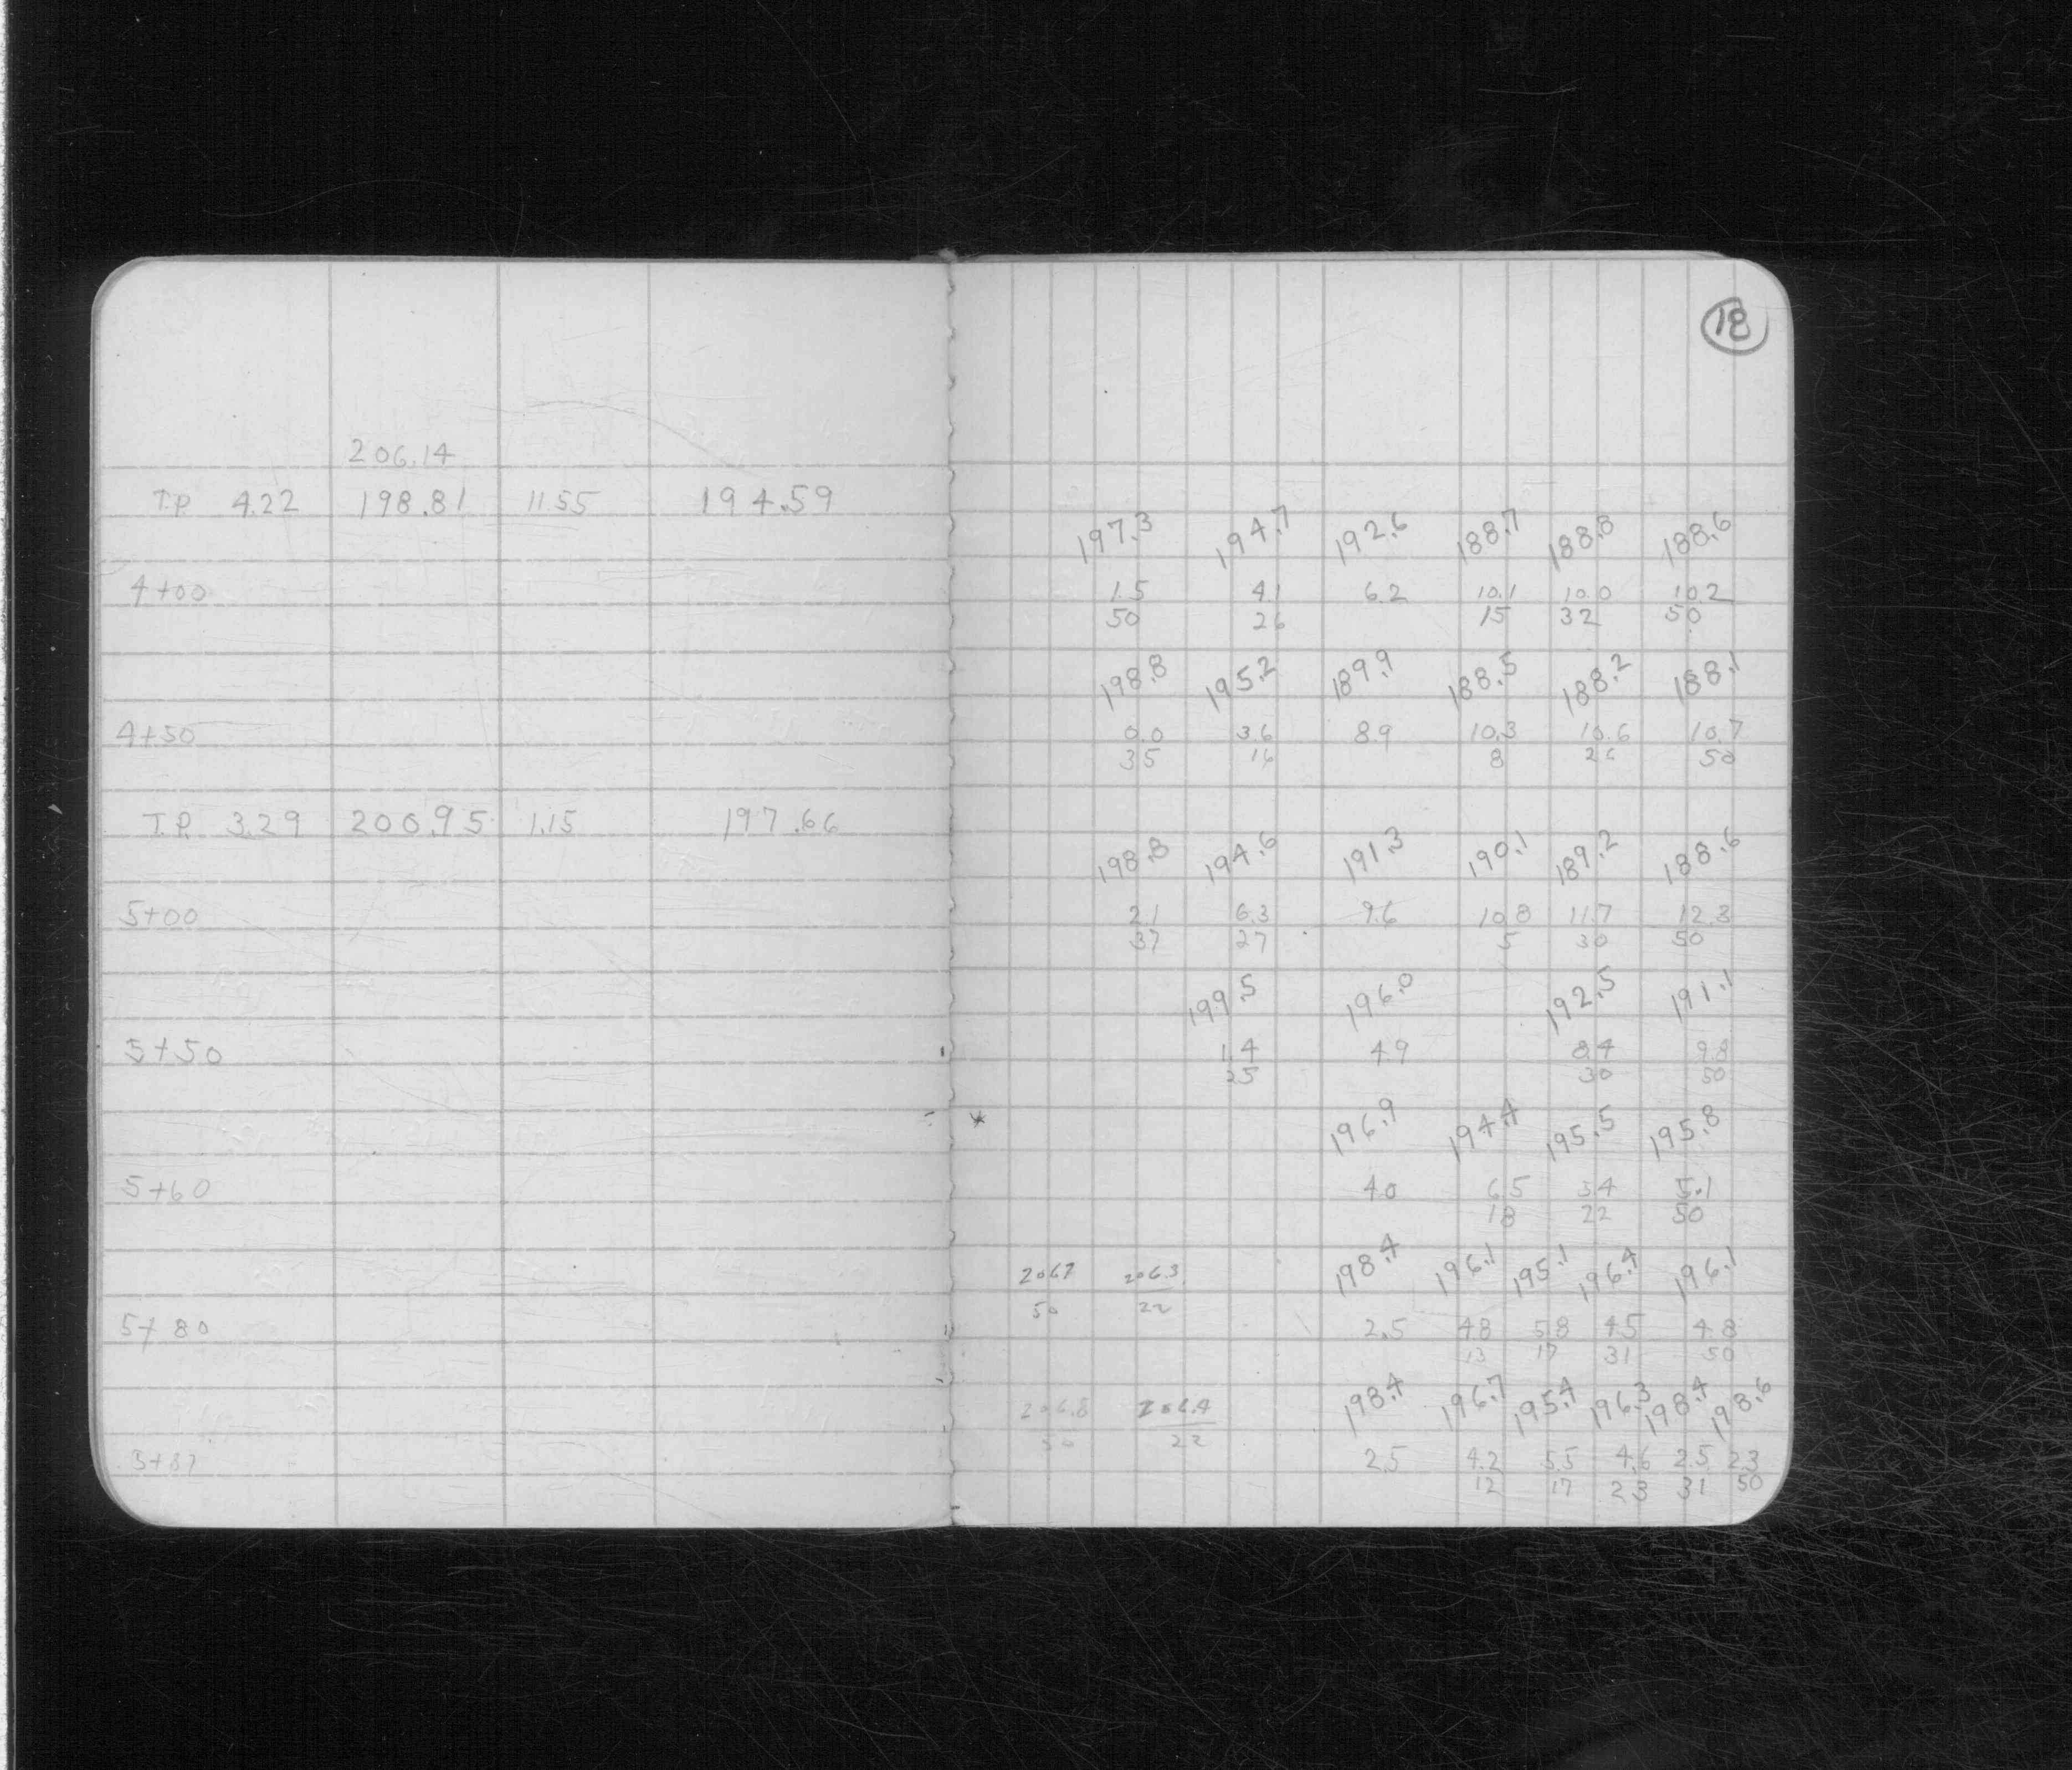 18
206.14
T.P. 4.22 198.81 11.55 194.59
197.3 194.7 192.6 188.7 188.8 188.6
4+00 1.5 4.1 6.2 10.1 10.0 10.2
50 26 15 32 50
198.8 195.2 189.9 188.5 188.2 188.1
4+50 0.0 3.6 8.9 10.3 10.6 10.7
35 16 8 26 50
T.P. 3.29 200.95 1.15 197.66
198.8 194.6 191.3 190.1 189.2 188.6
5+00 2.1 6.3 9.6 10.8 11.7 12.3
37 27 5 30 50
199.5 196.0 192.5 191.1
5+50 1.4 4.9 8.4 9.8
25 30 50
* 196.9 194.4 195.5 195.8
5+60 4.0 6.5 5.4 5.1
18 22 50
206.7 206.3 198.4 196.1 195.1 196.4 196.1
50 22
5+80 2.5 4.8 5.8 4.5 4.8
13 17 31 50
206.8 206.4 198.4 196.7 195.4 196.3 198.4 198.6
50 22
5+87 2.5 4.2 5.5 4.6 2.5 2.3
12 17 23 31 50